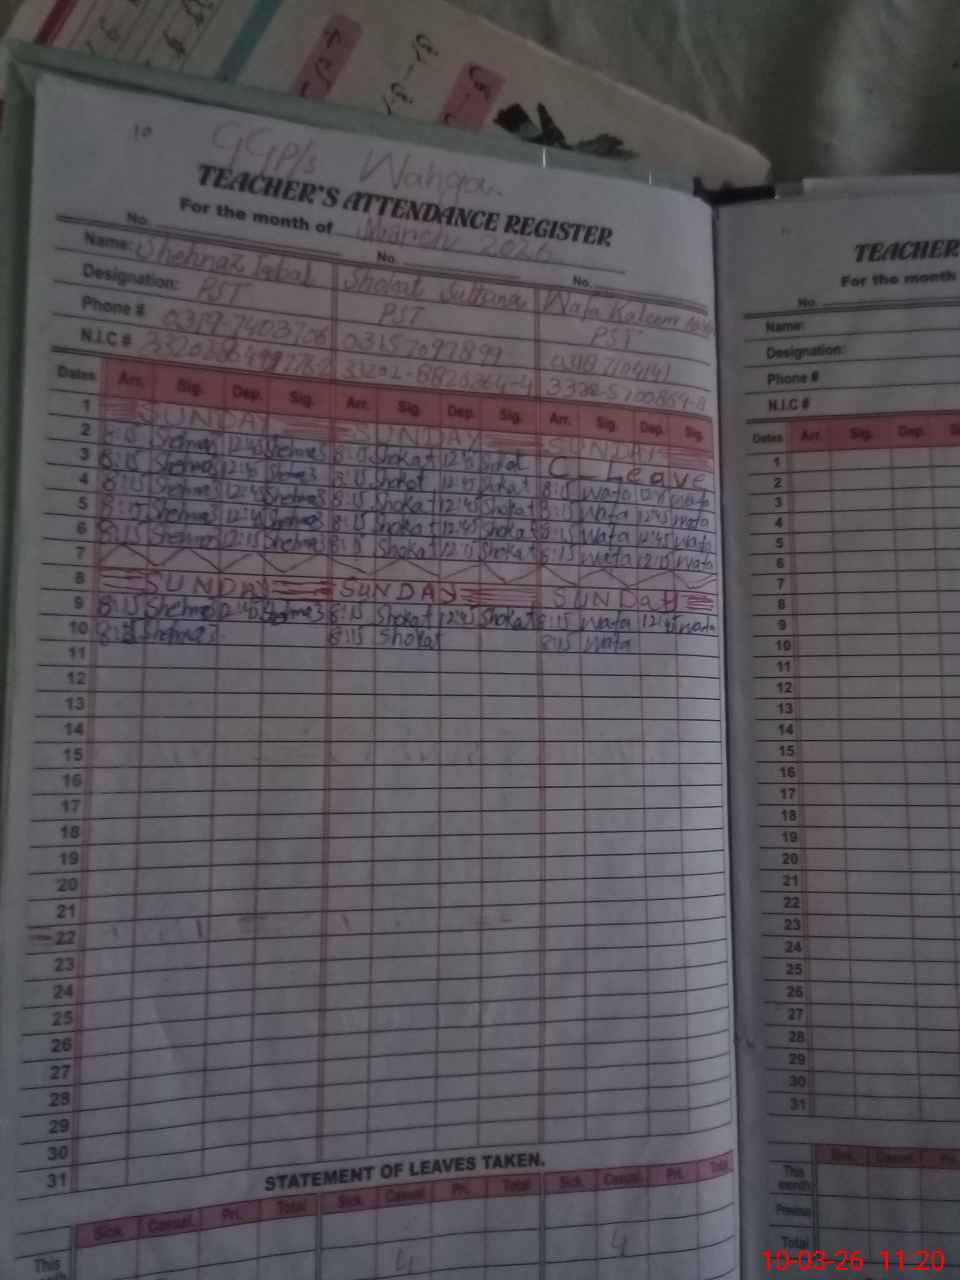 10
GGP/s Wahga.
TEACHER'S ATTENDANCE REGISTER
For the month of March 2026
No. No. No.
Name: Shehnaz Iqbal Shokat Sultana Wafa Kaleem
Designation: PST PST PST
Phone # 0319-7403706 03157097899
N.I.C #
Dates Arr. Sig. Dep. Sig. Arr. Sig. Dep. Sig. Arr. Sig. Dep. Sig.
1 SUNDAY SUNDAY SUNDAY
2 8:15 Shehnaz 12:45 Shehnaz 8:15 Shokat 12:45 Shokat C- Leave
3 8:15 Shehnaz 12:45 Shehnaz 8:15 Shokat 12:45 Shokat 8:15 Wafa 12:45 Wafa
4 8:15 Shehnaz 12:45 Shehnaz 8:15 Shokat 12:45 Shokat 8:15 Wafa 12:45 Wafa
5 8:15 Shehnaz 12:45 Shehnaz 8:15 Shokat 12:45 Shokat 8:15 Wafa 12:45 Wafa
6 8:15 Shehnaz 12:15 Shehnaz 8:15 Shokat 12:15 Shokat 8:15 Wafa 12:15 Wafa
7
8 SUNDAY SUNDAY SUNDAY
9 8:15 Shehnaz 12:45 Shehnaz 8:15 Shokat 12:45 Shokat 8:15 Wafa 12:45 Wafa
10 8:15 Shehnaz 8:15 Shokat 8:15 Wafa
11
12
13
14
15
16
17
18
19
20
21
22
23
24
25
26
27
28
29
30
31
STATEMENT OF LEAVES TAKEN.
Sick. Casual. Pri. Total Sick. Casual. Pri. Total Sick. Casual. Pri. Total
This 4 4
TEACHER
For the month
No.
Name:
Designation:
Phone #
N.I.C #
Dates Arr. Sig. Dep.
1
2
3
4
5
6
7
8
9
10
11
12
13
14
15
16
17
18
19
20
21
22
23
24
25
26
27
28
29
30
31
Sick. Casual.
This month
Previous
Total
10-03-26 11.20